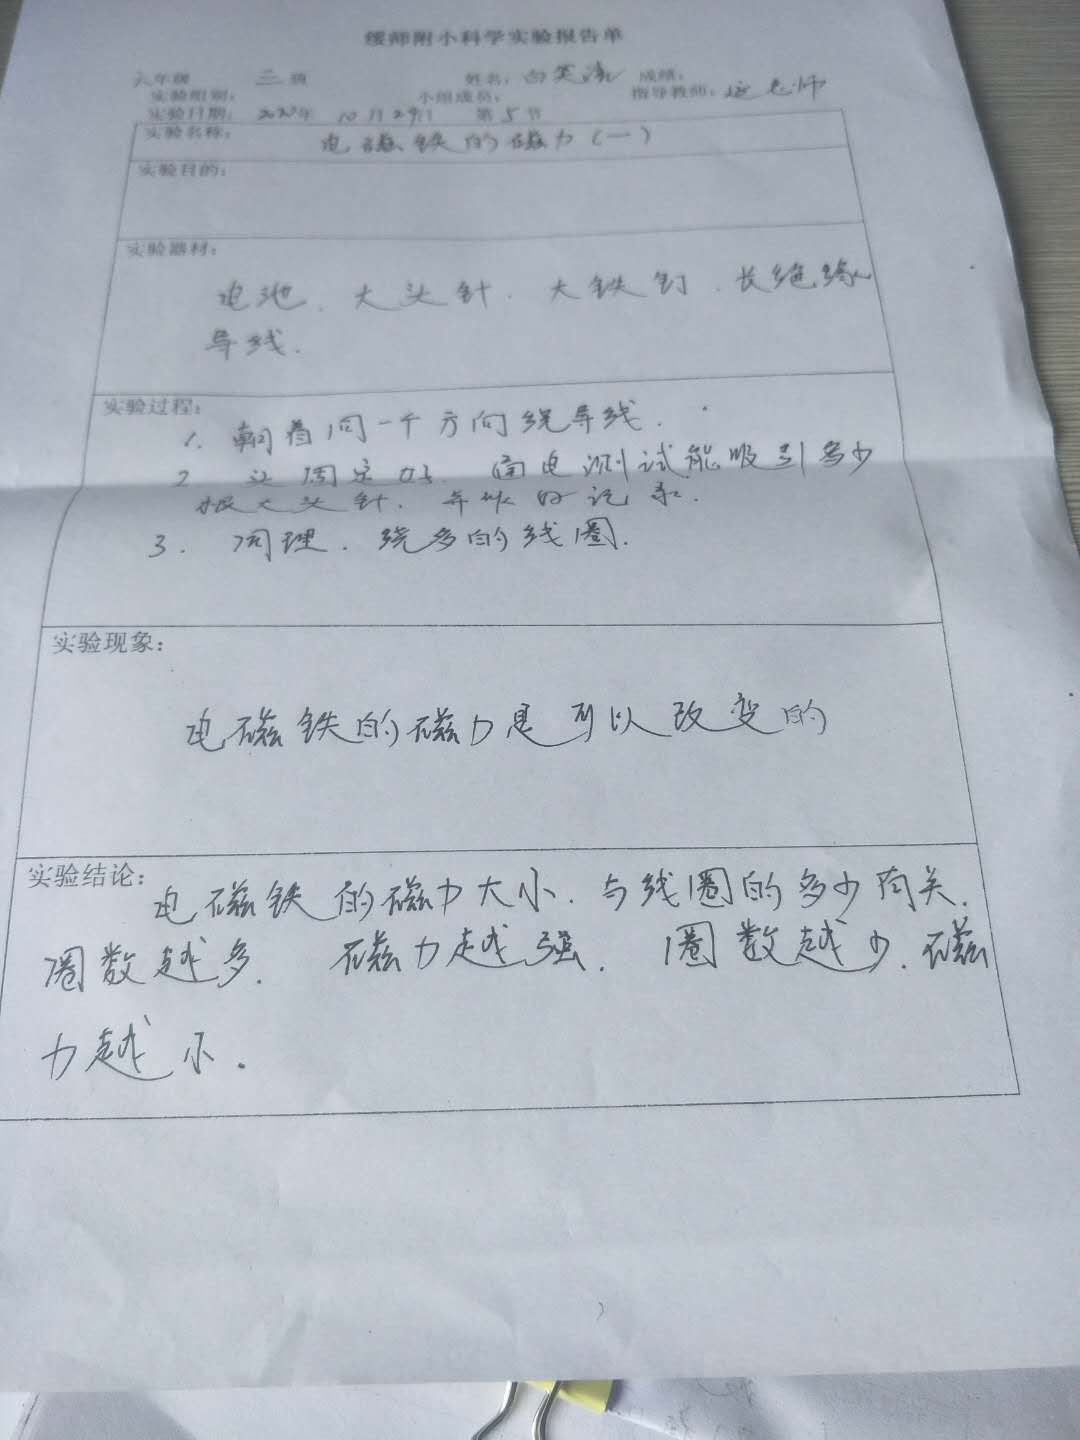 绥师附小科学实验报告单
六年级 三班 姓名: 白 成绩:
实验组别: 小组成员: 指导教师: 延老师
实验日期: 2020年 10月29日 第5节
实验名称: 电磁铁的磁力(一)
实验目的:
实验器材:
电池、大头针、大铁钉、长绝缘
导线.
实验过程:
1. 朝着同一个方向绕导线.
2 固定好. 通电测试能吸引多少
根大头针. 并做好记录.
3. 同理. 绕多的线圈.
实验现象:
电磁铁的磁力是可以改变的
实验结论:
电磁铁的磁力大小.与线圈的多少有关.
圈数越多. 磁力越强. 圈数越少.磁
力越小.